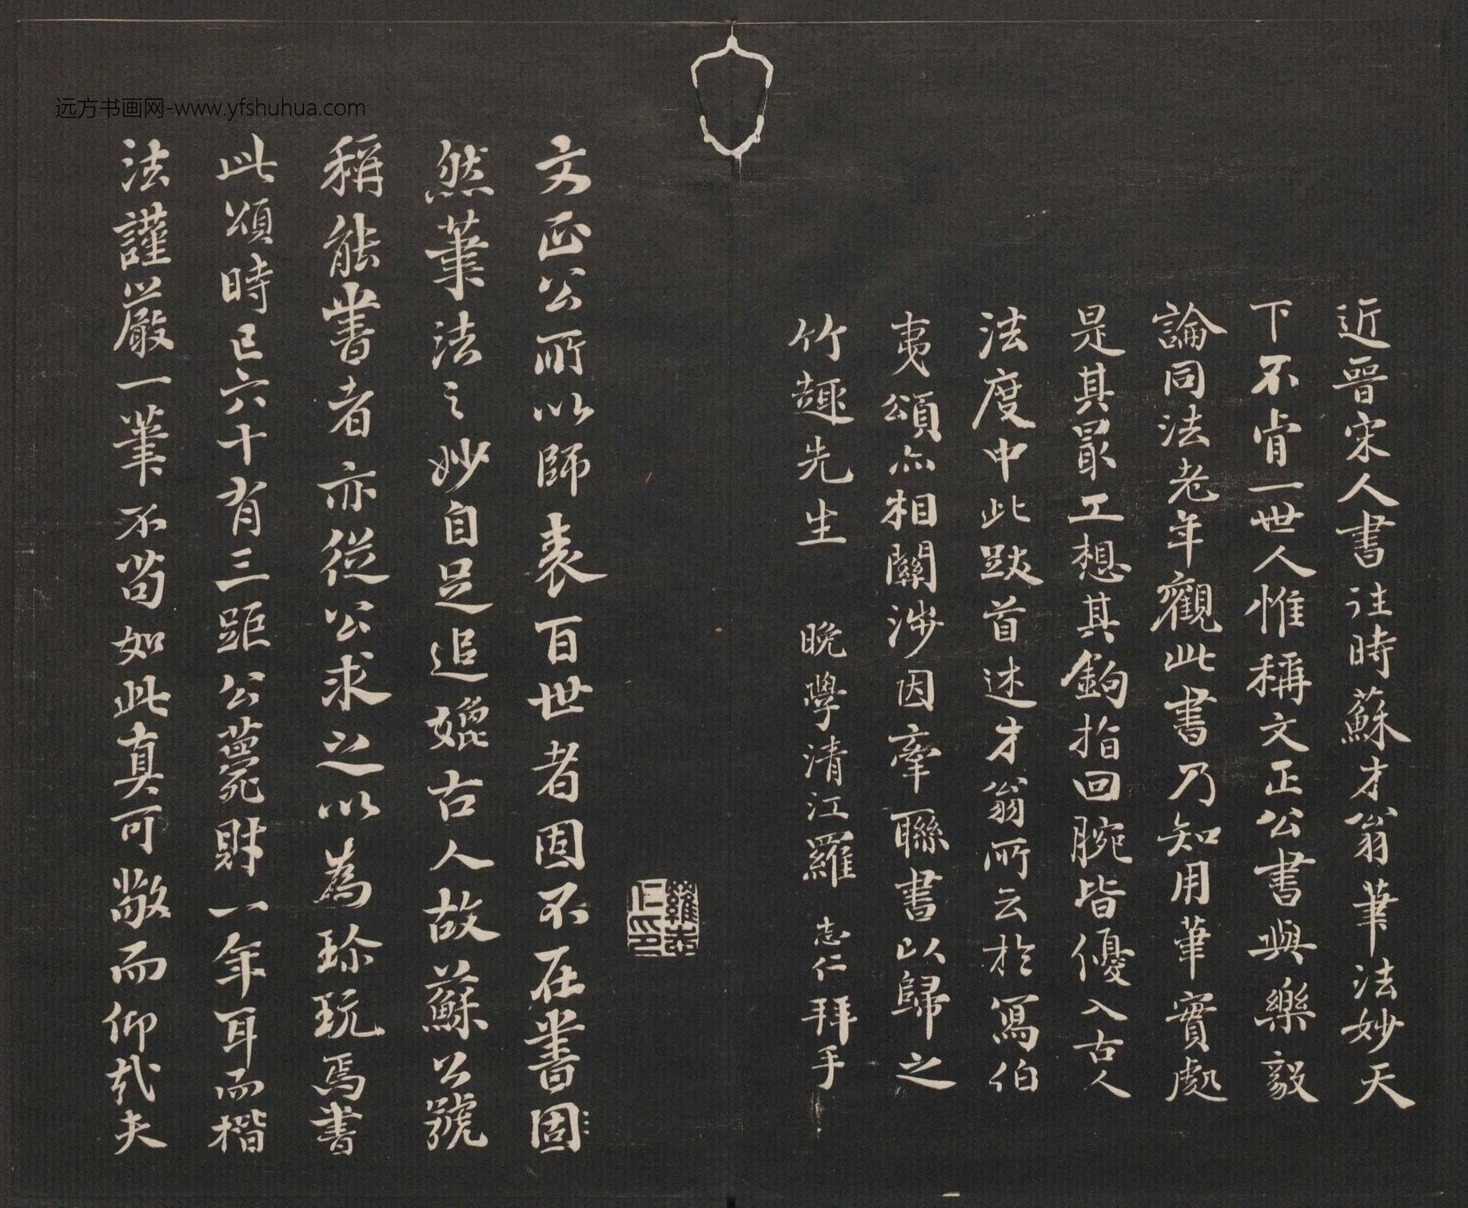 远方书画网-www.yfshuhua.com
近晉宋人書往時蘇才翁筆法妙天
下不肯一世人惟稱文正公書與樂毅
論同法老年觀此書乃知用筆實處
是其最工想其鉤指回腕皆優入古人
法度中此跋首述才翁所云於寫伯
夷頌亦相關涉因牽聯書以歸之
竹趣先生 晚學清江羅 志仁拜手
文正公所以師表百世者固不在書固
然筆法之妙自足追媲古人故蘇公號
稱能書者亦從公求之以為珍玩焉書
此頌時已六十有三距公薨財一年耳而楷
法謹嚴一筆不苟如此真可敬而仰哉夫